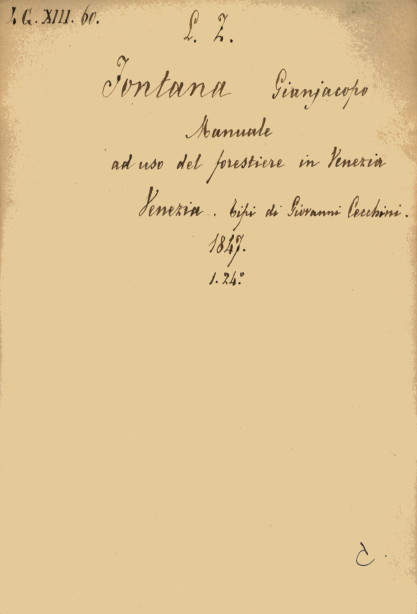 I. G. XIII. 60.
L. Z.
Fontana Gianjacopo
Manuale
ad uso del forestiere in Venezia
Venezia. tipi di Giovanni Cecchini.
1847.
1. 24°